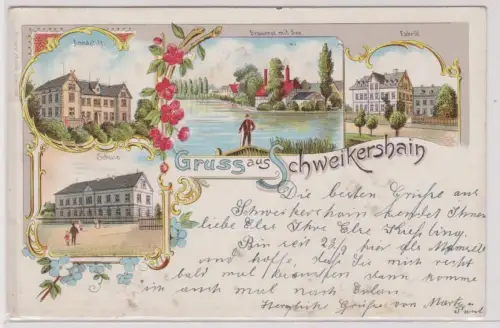 Brauerei mit See
Fabrik
Schule
Gruss aus Schweikershain
Die besten Grüße aus
Schweikershain sendet Ihnen
liebe Else Ihre Else Kießling.
Bin seit 23/5 hier als Mamsell
und hoffe, dass Sie mich recht
bald mal besuchen dann komme
ich auch mal nach Erlau.
Herzliche Grüße von